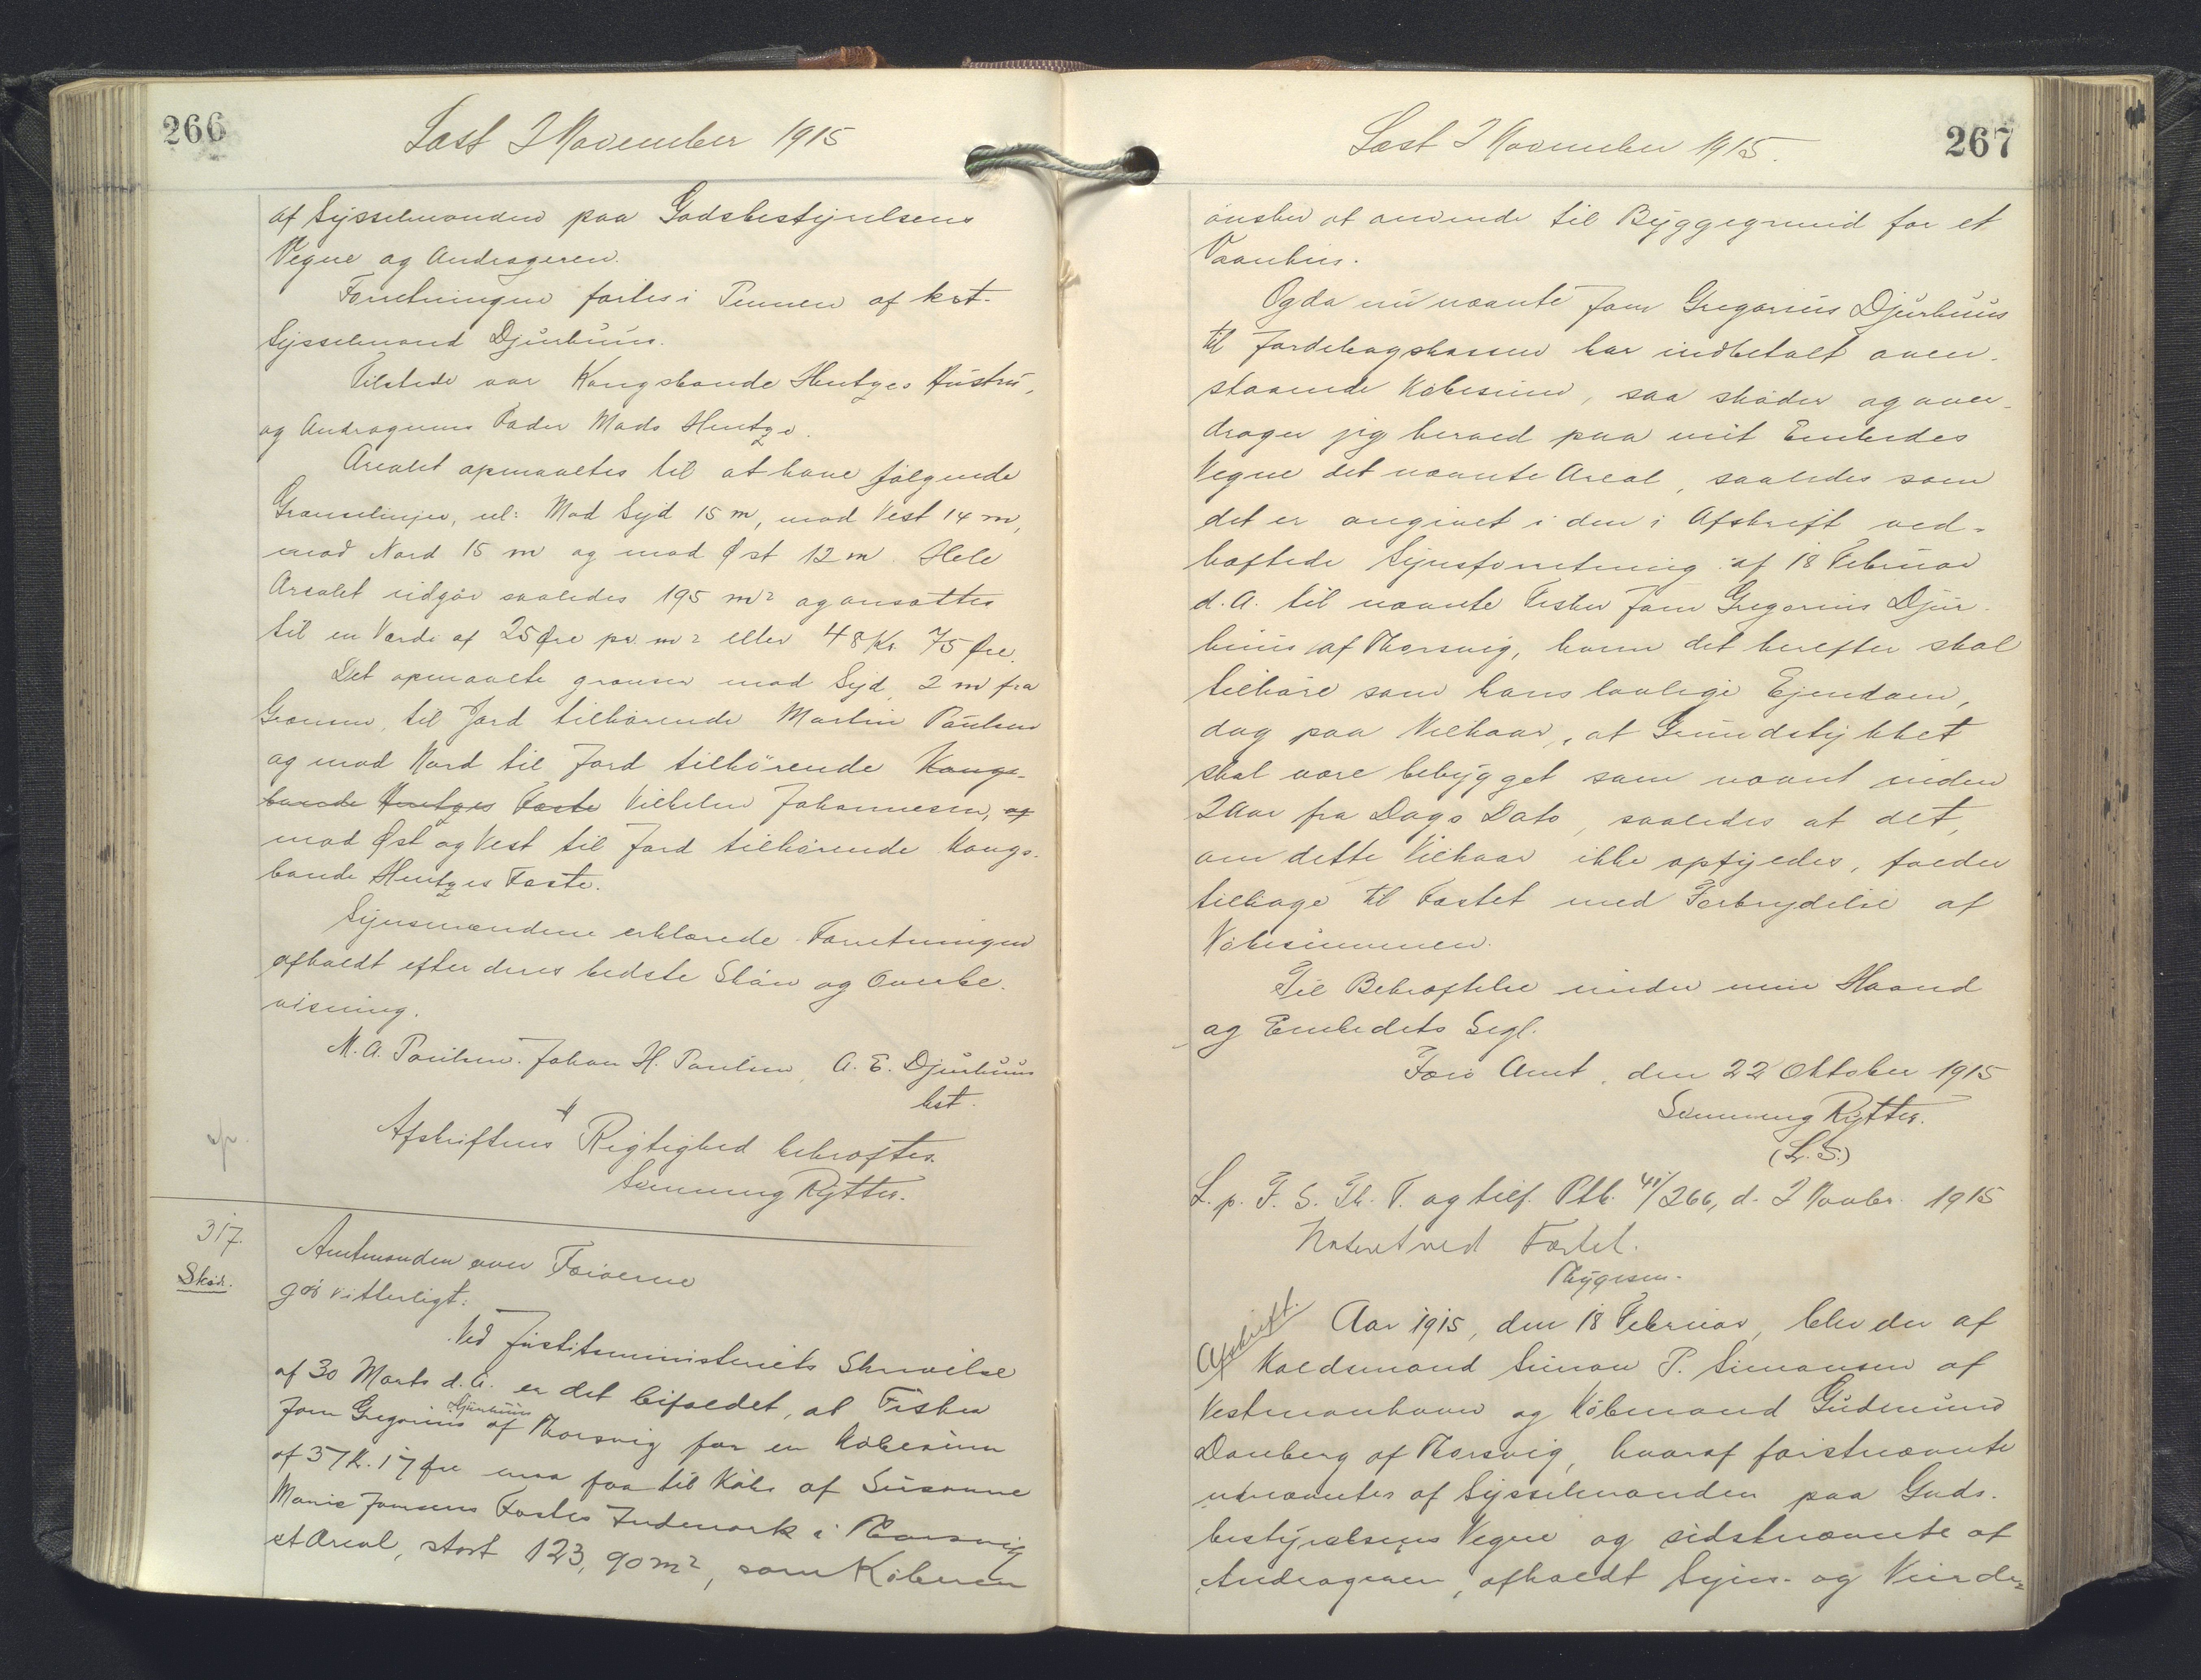 266
Læst 2 November 1915
af Sysselmanden paa Godsbestyrelsens
Vegne og Andrageren.
Forretningen førtes i Pennen af kst.
Sysselmand Djurhuus.
Tilstede var Kongsbonde Hentzes Hustru,
og Andragerens Fader Mads Hentze.
Arealet opmaaltes til at have følgende
Grænselinjer, nl: Mod Syd 15 m, mod Vest 14 m,
mod Nord 15 m og mod Øst 12 m. Hele
Arealet udgør saaledes 195 m² og ansattes
til en Værdi af 25 Øre pr. m² eller 48 Kr. 75 Øre.
Det opmaalte grænser mod Syd, 2 m fra
Grænsen, til Jord tilhørende Martin Paulsen
og mod Nord til Jord tilhørende Kongs-
bonde Hentzes Fæste Vilhelm Johannesen, og
mod Øst og Vest til Jord tilhørende Kongs-
bonde Hentzes Fæste.
Synsmændene erklærede Forretningen
afholdt efter deres bedste Skøn og Overbe-
visning.
M. A. Poulsen. Johan H. Poulsen, A. E. Djurhuus
kst.
Afskriftens Rigtighed bekræftes.
Svenning Rytter.
317.
Skød.
Amtmanden over Færøerne
gør vitterligt:
Ved Justitsministeriets Skrivelse
af 30 Marts d. A. er det bifaldet, at Fisker
Djurhuus
Joen Gregorius af Thorsvig for en Købesum
af 37 K. 17 Øre maa faa til Købs af Susanne
Marie Joensens Fæstes Indmark i Thorsvig
et Areal, stort 123,90 m², som Køberen
Læst 2 November 1915.
267
ønsker at anvende til Byggegrund for et
Vaanhus.
Og da nu nævnte Joen Gregorius Djurhuus
til Jordebogskassen har indbetalt oven-
staaende Købesum, saa skøder og over-
drager jeg herved paa mit Embedes
Vegne det nævnte Areal, saaledes som
det er angivet i den i Afskrift ved-
hæftede Synsforretning af 18 Februar
d. A. til nævnte Fisker Joen Gregorius Djur-
huus af Thorsvig, hvem det herefter skal
tilhøre som hans lovlige Ejendom,
dog paa Vilkaar, at Grundstykket
skal være bebygget som nævnt inden
2 Aar fra Dags Dato, saaledes at det,
om dette Vilkaar ikke opfyldes, falder
tilbage til Fæstet med Forbrydelse af
Købesummen.
Til Bekræftelse under min Haand
og Embedets Segl.
Færø Amt, den 22 Oktober 1915
Svenning Rytter.
(L. S.)
L. p. F. S. Th. T. og tilf. Ptk. 41/266, d. 2 Novbr. 1915
Noteret ved Fæstet.
Thygesen.
Afskrift.
Aar 1915, den 18 Februar, blev der af
Valdsmand Simon P. Simonsen af
Vestmanhavn og Købmand Gudmund
Danberg af Thorsvig, hvoraf førstnævnte
udnævntes af Sysselmanden paa Gods-
bestyrelsens Vegne og sidstnævnte af
Andrageren, afholdt Syns- og Vurde-